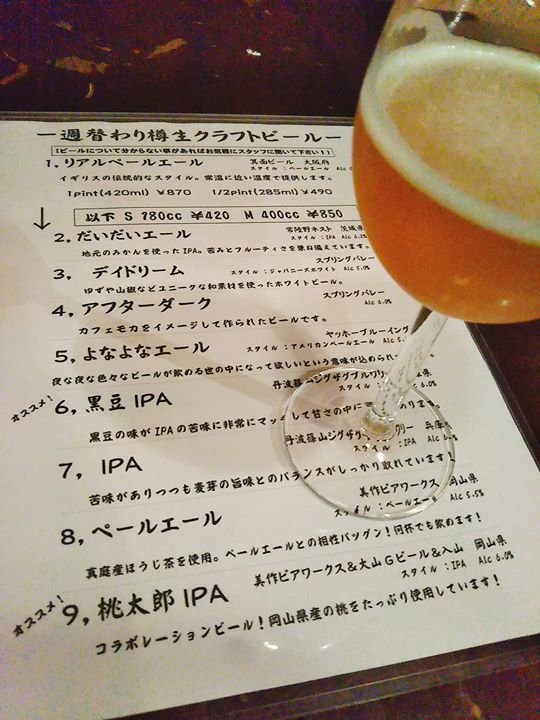 一週替わり樽生クラフトビール一
(ビールについて分からない事があればお気軽にスタッフに聞いて下さい!)
1, リアルペールエール 箕面ビール 大阪府
スタイル:ペールエール Alc
イギリスの伝統的なスタイル。常温に近い温度で提供します。
1pint(420ml) ¥870 1/2pint(285ml) ¥490
↓ 以下 S 180cc ¥420 M 400cc ¥850
2, だいだいエール 常陸野ネスト 茨城県
スタイル:IPA Alc 6.2%
地元のみかんを使ったIPA。苦みとフルーティさを兼ね備えています。
3, デイドリーム スプリングバレー
スタイル:ジャパニーズホワイト Alc 5.0%
ゆずや山椒などユニークな和素材を使ったホワイトビール。
4, アフターダーク スプリングバレー
Alc 6.0%
カフェモカをイメージして作られたビールです。
5, よなよなエール ヤッホーブルーイング
スタイル:アメリカンペールエール Alc 5.
夜な夜な色々なビールが飲める世の中になって欲しいという意味が込められ
オススメ! 6, 黒豆 IPA 丹波篠山ジグザグブルワリー
スタイル:IPA 6.0%
黒豆の味がIPAの苦味に非常にマッチして甘さの中に ります。
7, IPA 丹波篠山ジグザグ リー 兵庫
スタイル:IPA Alc
苦味がありつつも麦芽の旨味とのバランスがしっかり取れています!
8, ペールエール 美作ビアワークス 岡山県
スタイル:ペールエール Alc 5.5%
真庭産ほうじ茶を使用。ペールエールとの相性バツグン!何杯でも飲めます!
オススメ! 9, 桃太郎 IPA 美作ビアワークス&大山Gビール&入山 岡山県
スタイル:IPA Alc 6.0%
コラボレーションビール!岡山県産の桃をたっぷり使用しています!